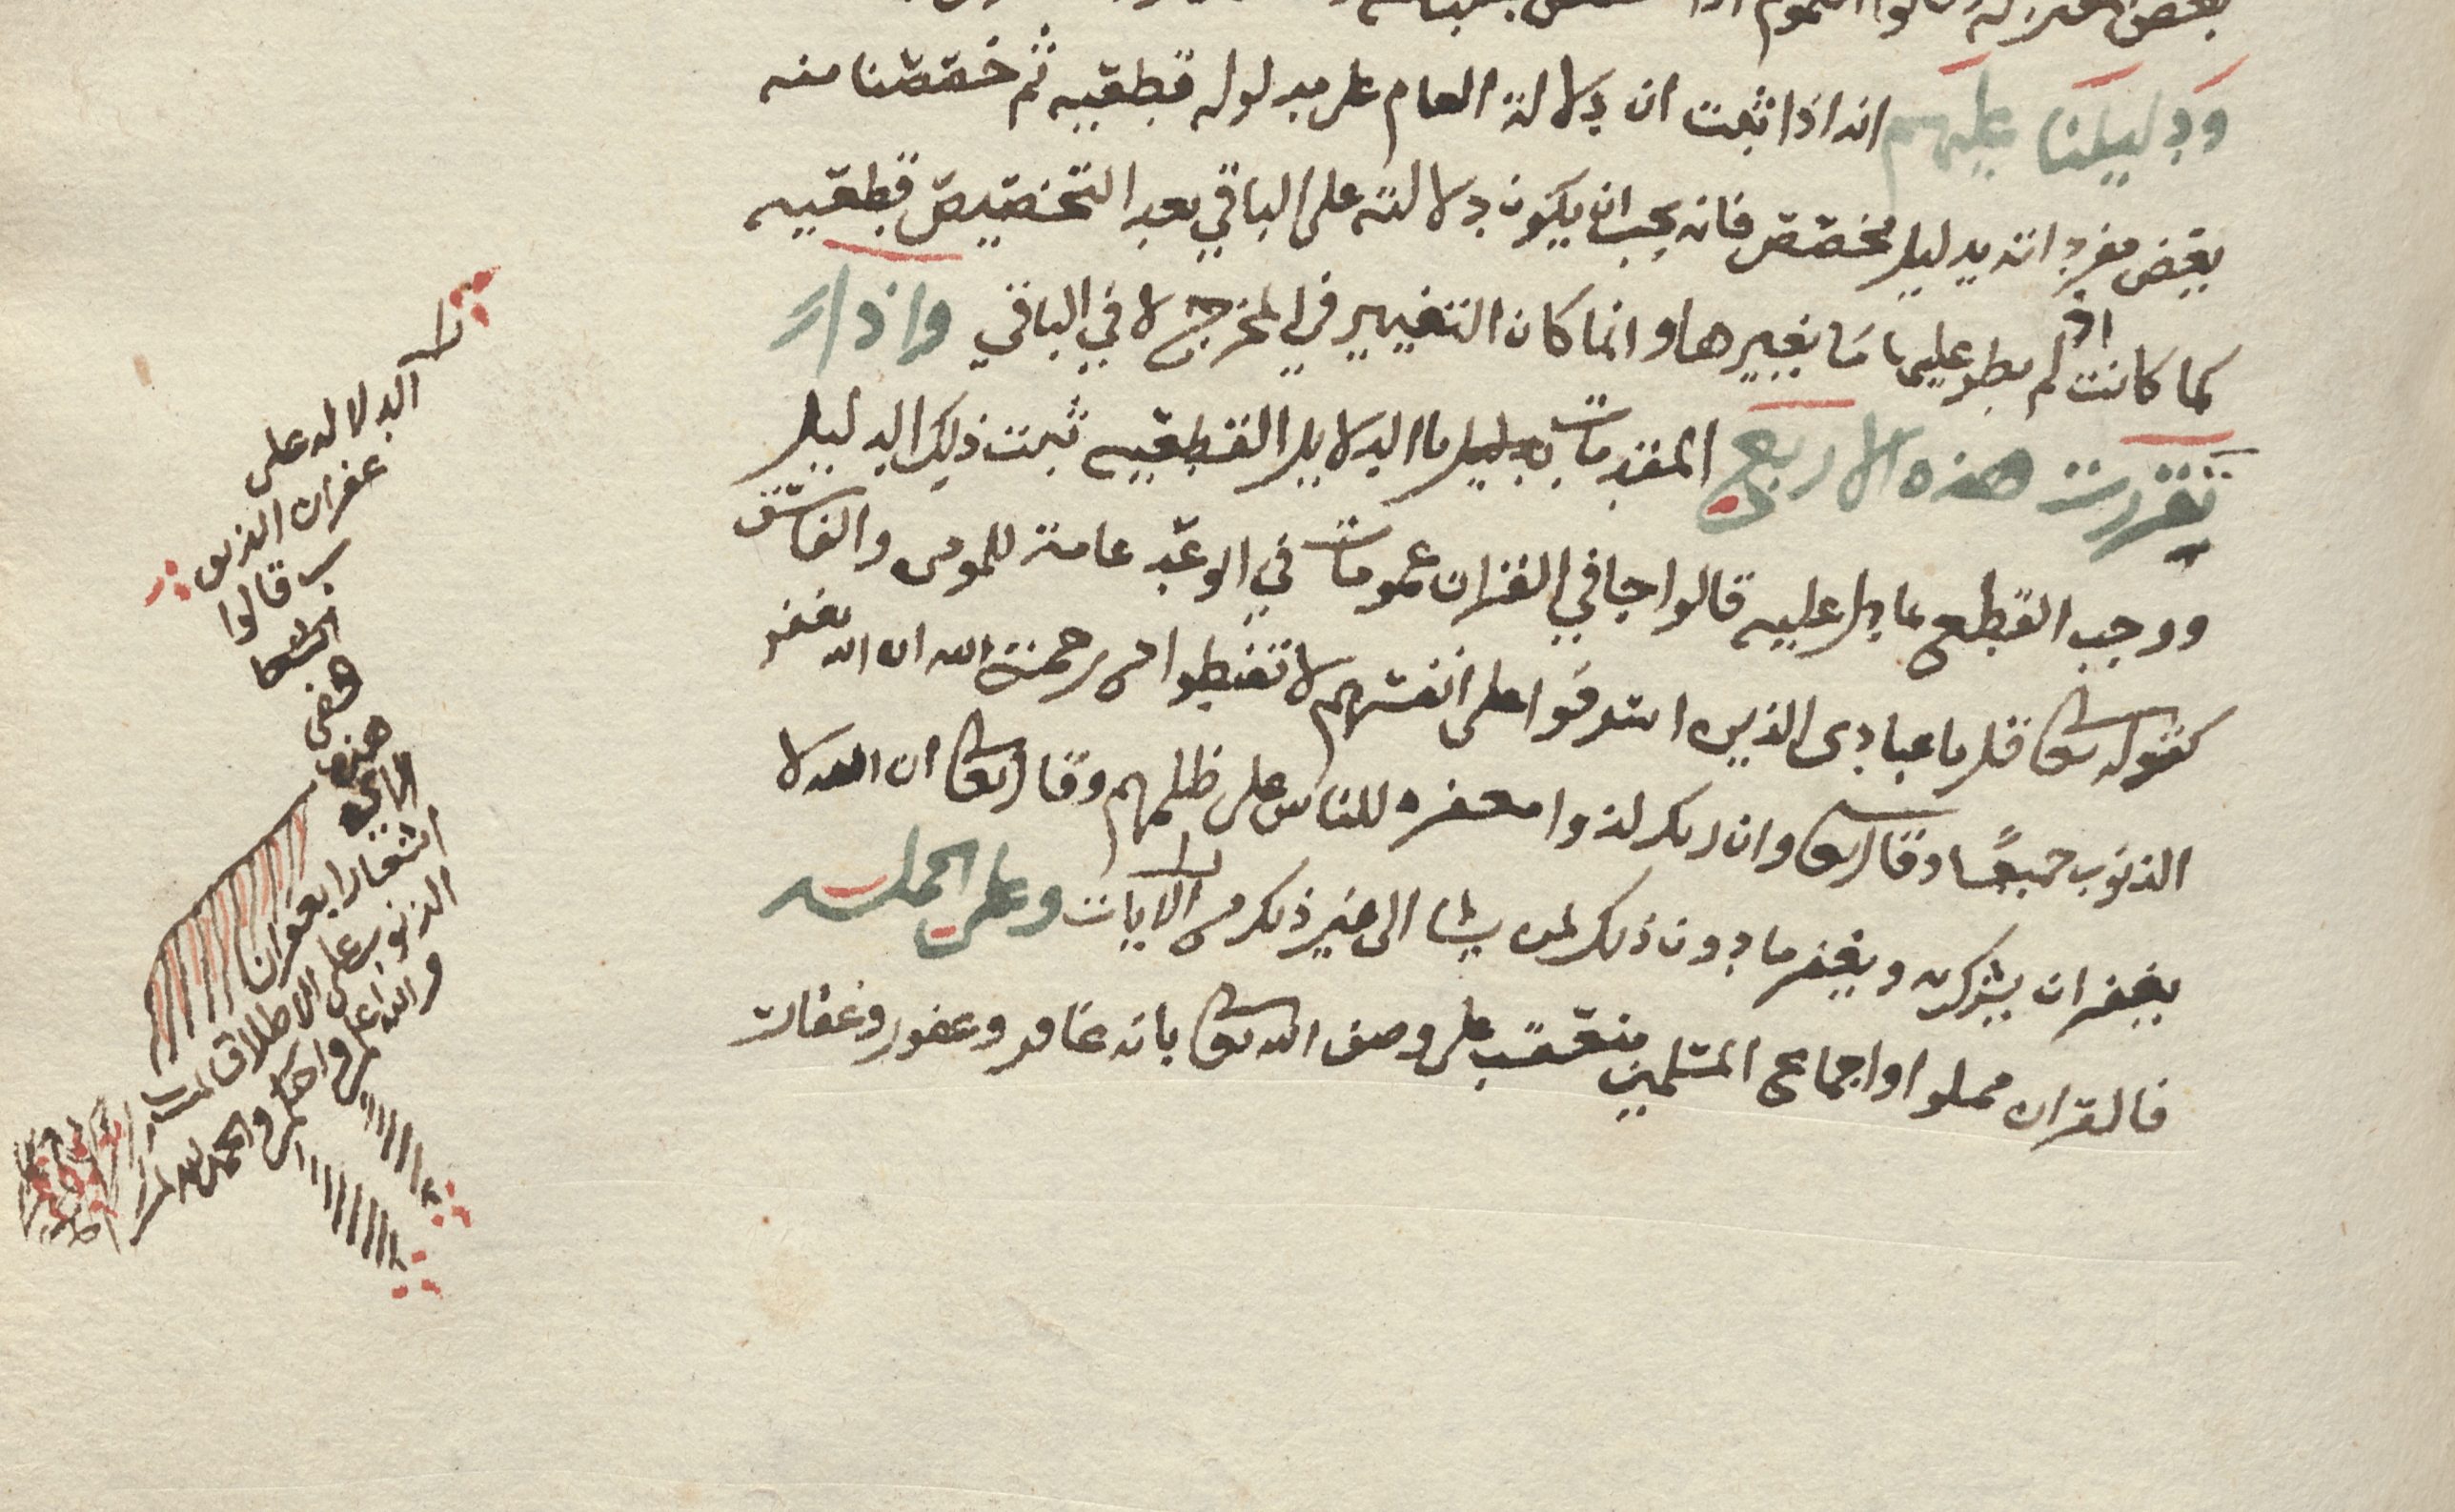 ودليلنا عليهم انه اذا ثبت ان دلالة العام على مدلوله قطعيه ثم خصصنا منه
بعض مفرداته بدليل مخصص فانه يجب ان يكون دلالته على الباقي بعد التخصيص قطعيه
كما كانت اذ لم يطر عليها ما يغيرها وانما كان التغيير في المخرج لا في الباقي واذا
تقررت هذه الاربع المقدمات الدلايل القطعيه ثبت ذلك الدليل
ووجب القطع بما دل عليه قالوا جا في القران عمومات في الوعد عامة للمومن والفاسق
كقوله تعا قل يا عبادى الذين اسرفوا على انفسهم لا تقنطوا من رحمة الله ان الله يغفر
الذنوب جميعًا وقال تعا وان ربك لذوا مغفره للناس على ظلمهم وقال تعا ان الله لا
يغفر ان يشرك به ويغفر ما دون ذلك لمن يشا الى غير ذلك من الايات وعلى الجمله
فالقران مملوا واجماع المسلمين منعقد على وصف الله تعا بانه غافر وغفور وغفار
الداله على
غفران الذنوب
قالوا
هذه
الاى
اشعارا بغفران
الذنوب على الاطلاق
والله اعلم واحكم والحمد لله